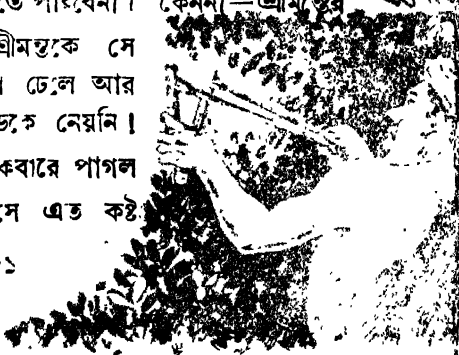 পারবেনা। কেননা—শ্রীমন্তের
শ্রীমন্তকে সে
ঢেলে আর
কে নেয়নি!
কবারে পাগল
সে এত কষ্ট
১